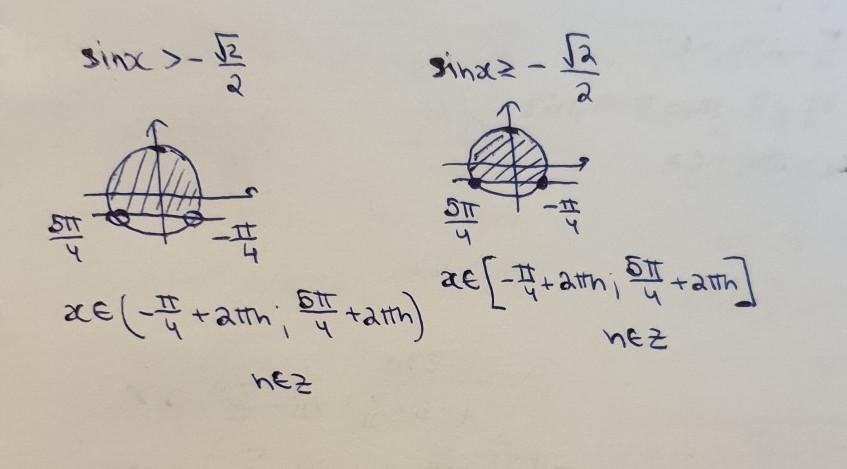 sinx > -√2/2
5π/4
-π/4
x∈(-π/4 + 2πn; 5π/4 + 2πn)
n∈Z
sinx ≥ -√2/2
5π/4
-π/4
x∈[-π/4 + 2πn; 5π/4 + 2πn]
n∈Z